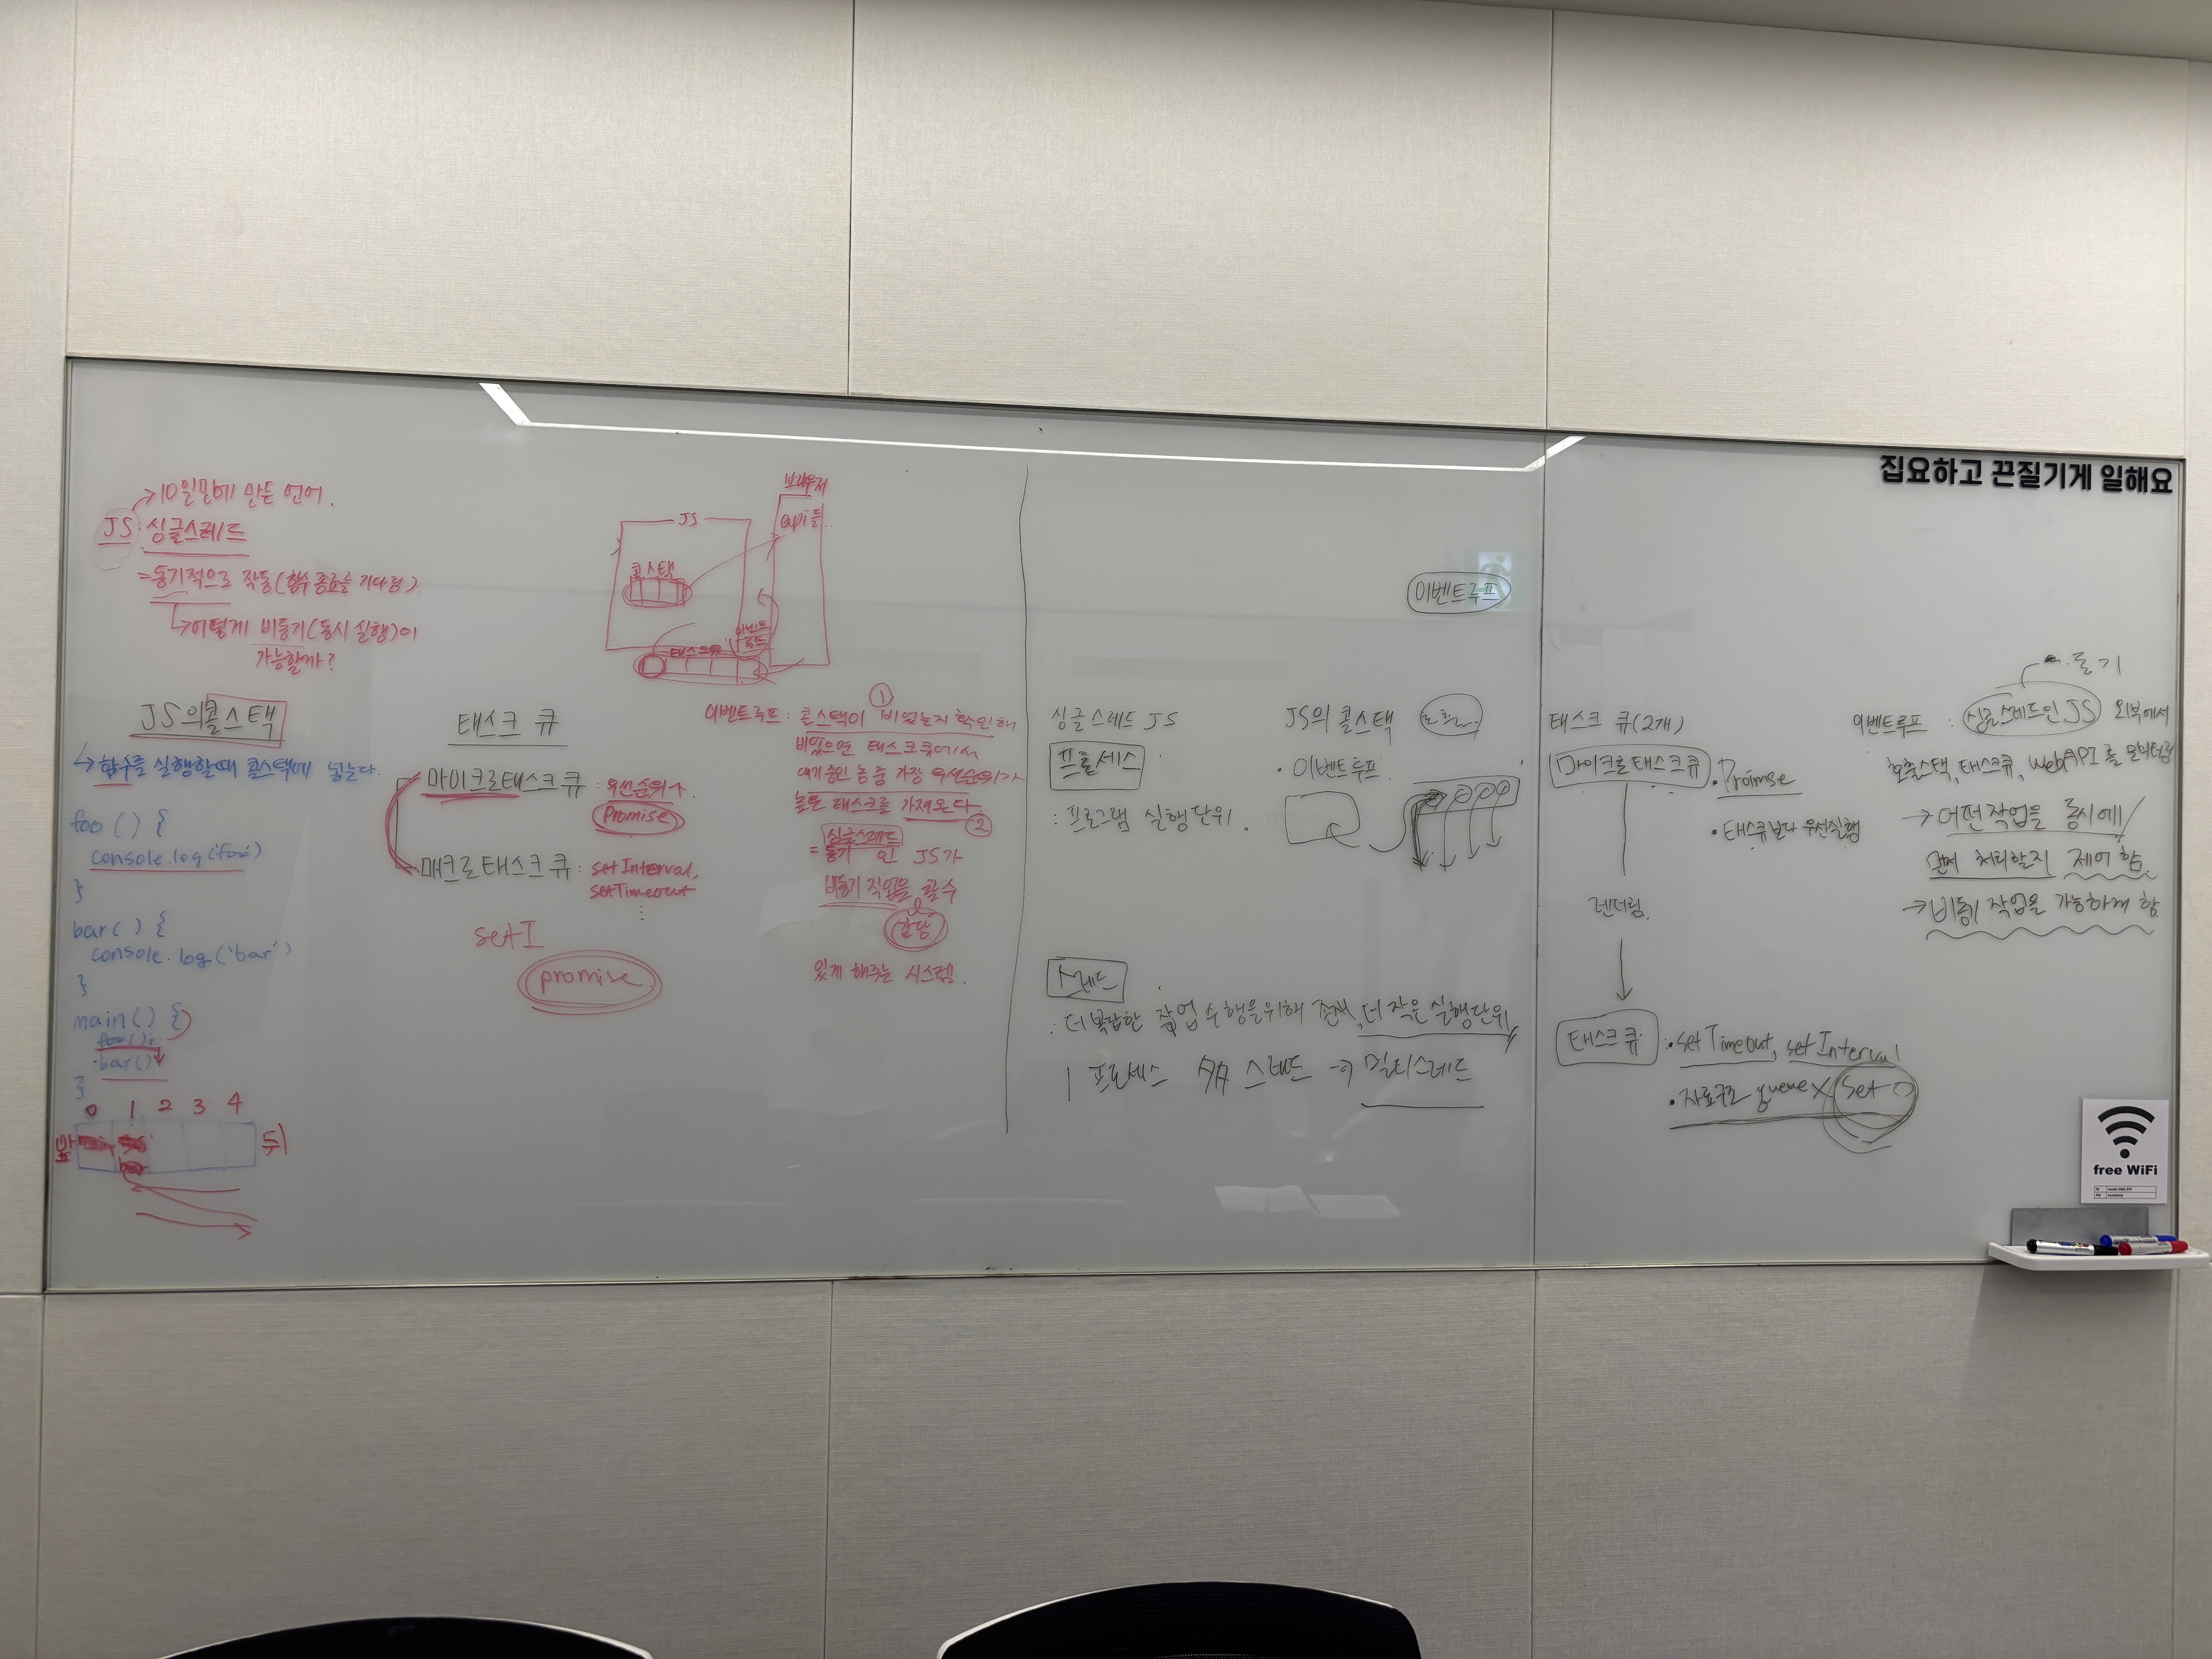 집요하고 끈질기게 일해요
→10일만에 만든 언어.
JS: 싱글스레드
=동기적으로 작동(함수 종료를 기다림).
↳어떻게 비동기(동시 실행)이
가능할까?
JS의 콜스택
↳함수를 실행할때 콜스택에 넣는다.
foo () {
console.log('foo')
}
bar( ) {
console.log('bar')
}
main() {
foo();
bar()
}
0 1 2 3 4
앞
뒤
태스크 큐
마이크로태스크 큐 : 우선순위↑
Promise
매크로태스크 큐 : setInterval,
setTimeout
⋮
setI
promise
브라우저
api들..
JS
콜스택
이벤트
루프
태스크큐
①
이벤트루프 : 콜스택이 비었는지 확인해
비었으면 태스크큐에서
대기중인 놈 중 가장 우선순위가
높은 태스크를 가져온다.
②
싱글스레드
= 동기 인 JS가
비동기 작업을 할 수
있게 해주는 시스템.
이벤트루프
싱글스레드 JS
프로세스
: 프로그램 실행단위.
스레드
: 더 복잡한 작업 수행을위해 존재, 더 작은 실행단위
1 프로세스 多 스레드 → 멀티스레드
JS의 콜스택
· 이벤트루프
태스크 큐(2개)
마이크로태스크큐
· Proimse
· 태스큐보다 우선실행
렌더링.
태스크큐 : · setTimeout, setInterval
· 자료구조 queue X Set O
동기
이벤트루프 : 싱글스레드인 JS 외부에서
호출스택, 태스크큐, WebAPI 를 모니터링
→ 어떤작업을 동시에/
먼저 처리할지 제어 함.
→ 비동기 작업을 가능하게 함
free WiFi